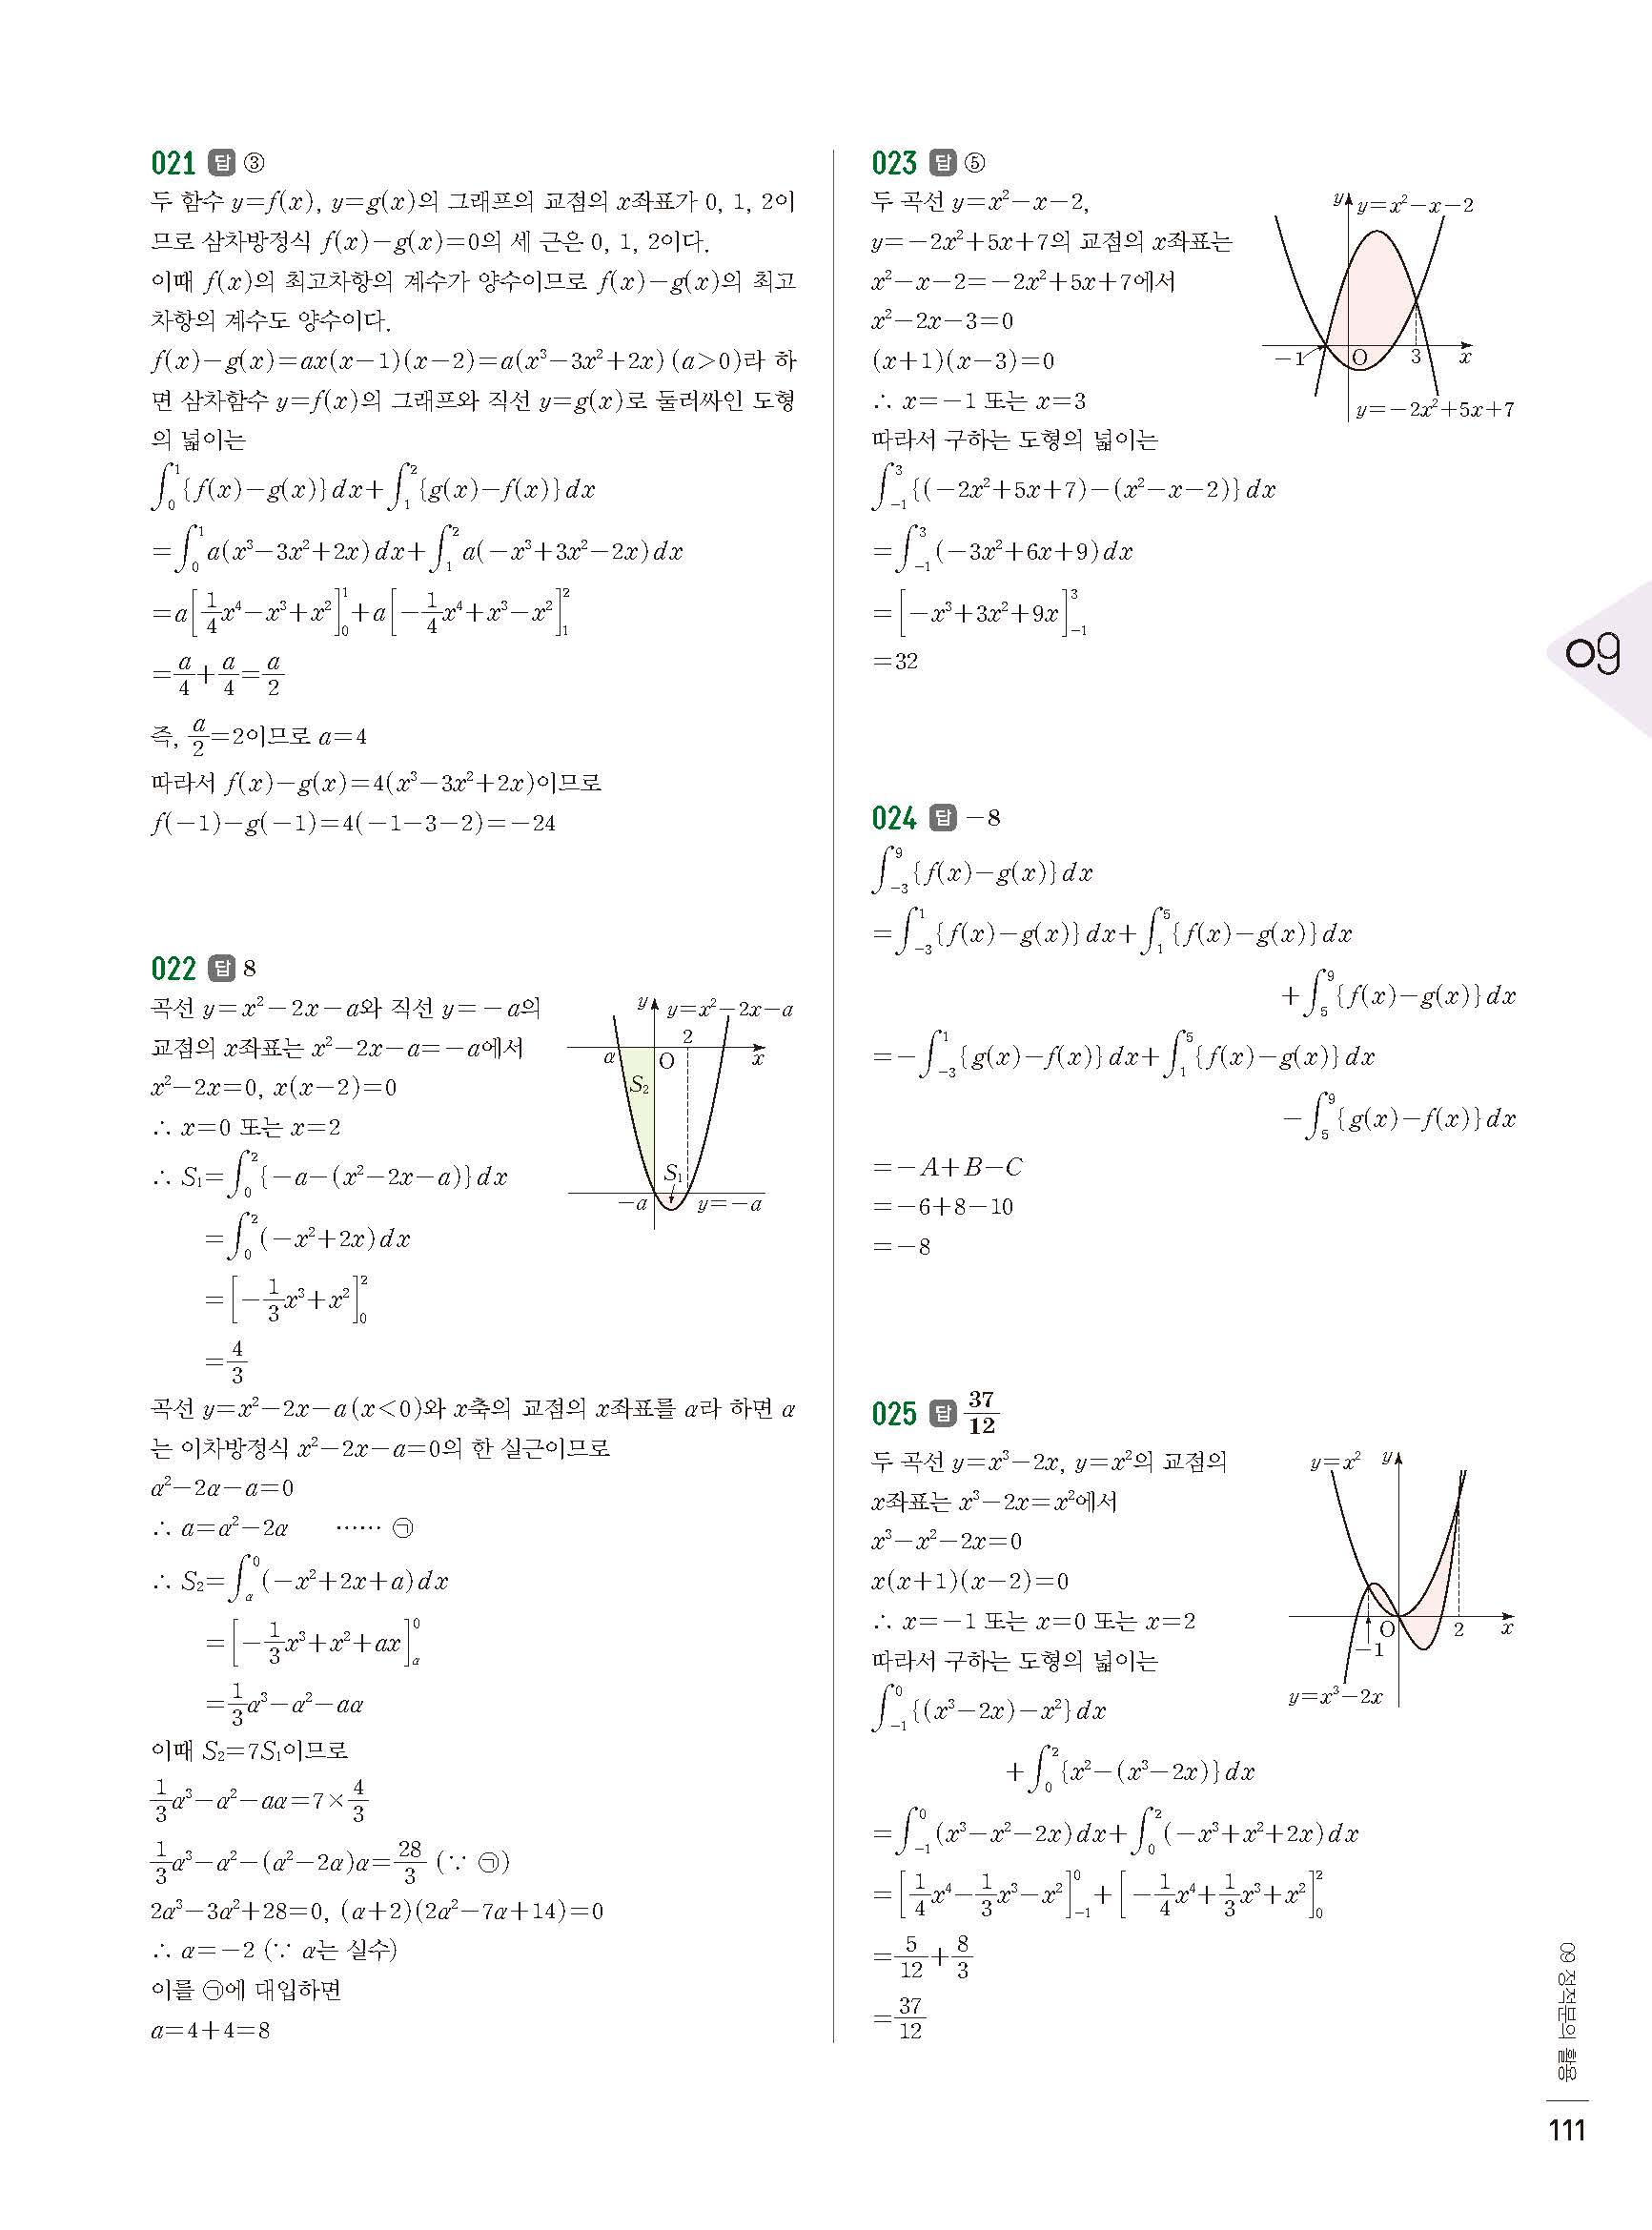 021 답 ③
두 함수 y=f(x), y=g(x)의 그래프의 교점의 x좌표가 0, 1, 2이
므로 삼차방정식 f(x)-g(x)=0의 세 근은 0, 1, 2이다.
이때 f(x)의 최고차항의 계수가 양수이므로 f(x)-g(x)의 최고
차항의 계수도 양수이다.
f(x)-g(x)=ax(x-1)(x-2)=a(x³-3x²+2x) (a>0)라 하
면 삼차함수 y=f(x)의 그래프와 직선 y=g(x)로 둘러싸인 도형
의 넓이는
∫₀¹{f(x)-g(x)}dx+∫₁²{g(x)-f(x)}dx
=∫₀¹a(x³-3x²+2x)dx+∫₁²a(-x³+3x²-2x)dx
=a[1/4x⁴-x³+x²]₀¹+a[-1/4x⁴+x³-x²]₁²
=a/4+a/4=a/2
즉, a/2=2이므로 a=4
따라서 f(x)-g(x)=4(x³-3x²+2x)이므로
f(-1)-g(-1)=4(-1-3-2)=-24
022 답 8
곡선 y=x²-2x-a와 직선 y=-a의
교점의 x좌표는 x²-2x-a=-a에서
x²-2x=0, x(x-2)=0
∴ x=0 또는 x=2
∴ S₁=∫₀²{-a-(x²-2x-a)}dx
=∫₀²(-x²+2x)dx
=[-1/3x³+x²]₀²
=4/3
y y=x²-2x-a
2
α O x
S₂
S₁
-a y=-a
곡선 y=x²-2x-a(x<0)와 x축의 교점의 x좌표를 α라 하면 α
는 이차방정식 x²-2x-a=0의 한 실근이므로
α²-2α-a=0
∴ a=α²-2α ⋯⋯ ㉠
∴ S₂=∫_α⁰(-x²+2x+a)dx
=[-1/3x³+x²+ax]_α⁰
=1/3α³-α²-aα
이때 S₂=7S₁이므로
1/3α³-α²-aα=7×4/3
1/3α³-α²-(α²-2α)α=28/3 (∵ ㉠)
2α³-3α²+28=0, (α+2)(2α²-7α+14)=0
∴ α=-2 (∵ α는 실수)
이를 ㉠에 대입하면
a=4+4=8
023 답 ⑤
두 곡선 y=x²-x-2,
y=-2x²+5x+7의 교점의 x좌표는
x²-x-2=-2x²+5x+7에서
x²-2x-3=0
(x+1)(x-3)=0
∴ x=-1 또는 x=3
따라서 구하는 도형의 넓이는
y y=x²-x-2
-1 O 3 x
y=-2x²+5x+7
∫₋₁³{(-2x²+5x+7)-(x²-x-2)}dx
=∫₋₁³(-3x²+6x+9)dx
=[-x³+3x²+9x]₋₁³
=32
024 답 -8
∫₋₃⁹{f(x)-g(x)}dx
=∫₋₃¹{f(x)-g(x)}dx+∫₁⁵{f(x)-g(x)}dx
+∫₅⁹{f(x)-g(x)}dx
=-∫₋₃¹{g(x)-f(x)}dx+∫₁⁵{f(x)-g(x)}dx
-∫₅⁹{g(x)-f(x)}dx
=-A+B-C
=-6+8-10
=-8
025 답 37/12
두 곡선 y=x³-2x, y=x²의 교점의
x좌표는 x³-2x=x²에서
x³-x²-2x=0
x(x+1)(x-2)=0
∴ x=-1 또는 x=0 또는 x=2
따라서 구하는 도형의 넓이는
y=x² y
O 2 x
-1
y=x³-2x
∫₋₁⁰{(x³-2x)-x²}dx
+∫₀²{x²-(x³-2x)}dx
=∫₋₁⁰(x³-x²-2x)dx+∫₀²(-x³+x²+2x)dx
=[1/4x⁴-1/3x³-x²]₋₁⁰+[-1/4x⁴+1/3x³+x²]₀²
=5/12+8/3
=37/12
09
09 정적분의 활용
111